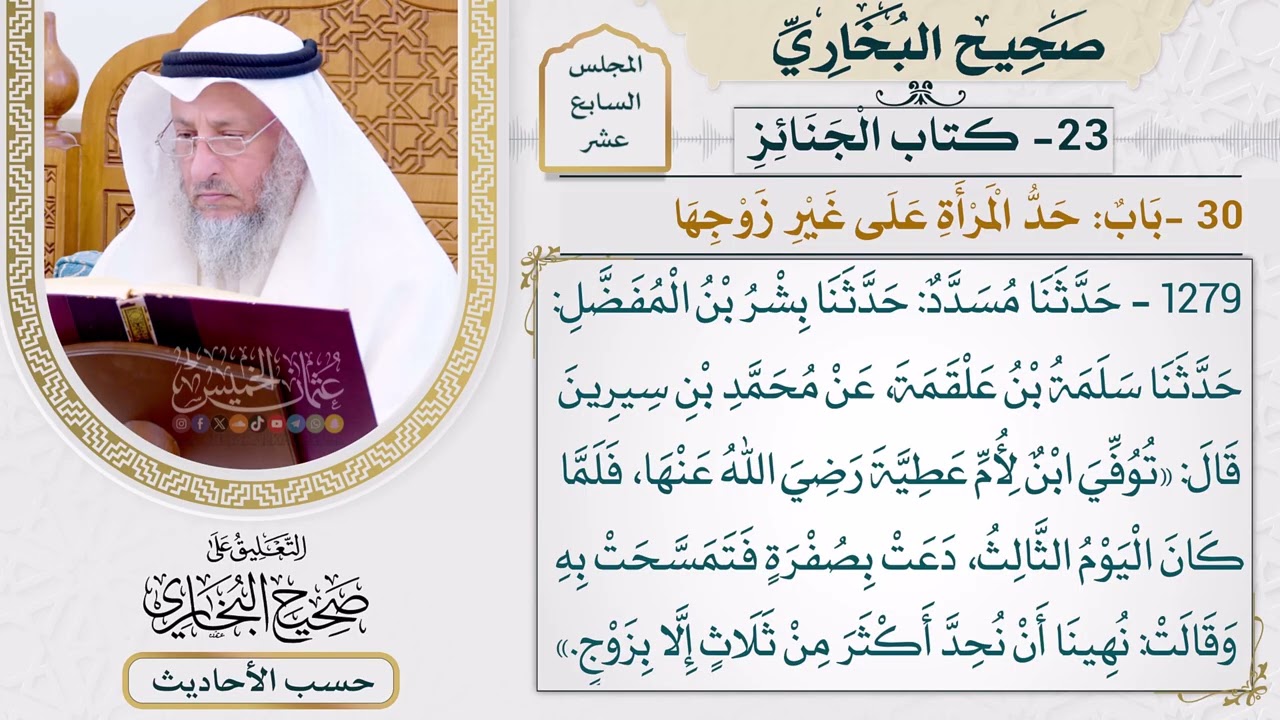 صَحِيح البُخَارِيِّ
المجلس
السابع
عشر
23- كتاب الْجَنَائِزِ
30 -بَابُ: حَدُّ الْمَرْأَةِ عَلَى غَيْرِ زَوْجِهَا
1279 - حَدَّثَنَا مُسَدَّدٌ: حَدَّثَنَا بِشْرُ بْنُ الْمُفَضَّلِ:
حَدَّثَنَا سَلَمَةُ بْنُ عَلْقَمَةَ، عَنْ مُحَمَّدِ بْنِ سِيرِينَ
قَالَ: «تُوُفِّيَ ابْنٌ لِأُمِّ عَطِيَّةَ رَضِيَ اللهُ عَنْهَا، فَلَمَّا
كَانَ الْيَوْمُ الثَّالِثُ، دَعَتْ بِصُفْرَةٍ فَتَمَسَّحَتْ بِهِ
وَقَالَتْ: نُهِينَا أَنْ نُحِدَّ أَكْثَرَ مِنْ ثَلَاثٍ إِلَّا بِزَوْجٍ.»
عثمان الخميس
التعليق على
صَحِيح البُخَاري
حسب الأحاديث